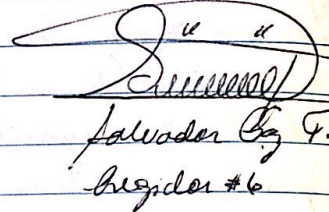 Salvador Gg F.
Regidor #6